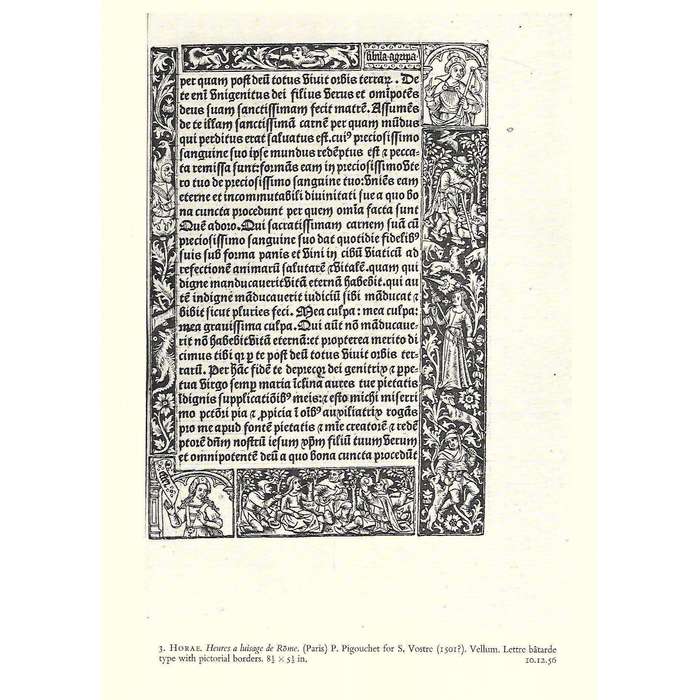 sibila·agripa
per quam post deū totus viuit orbis terraꝝ. De
te eni vnigenitus dei filius verus et omīpotēs
deus suam sanctissimam fecit matrē. Assumēs
de te illam sanctissimā carnē per quam mūdus
qui perditus erat saluatus est. cuiꝰ preciosissimo
sanguine suo ipse mundus redēptus est ⁊ pecca-
ta remissa sunt: formās eam in preciosissimo vte
ro tuo de preciosissimo sanguine tuo: vniēs eam
eterne et incommutabili diuinitati sue a quo bo
na cuncta procedunt per quem omīa facta sunt
Quē adoro. Qui sacratissimam carnem suā cū
preciosissimo sanguine suo dat quotidie fidelibꝰ
suis sub forma panis et vini in cibū viaticū ad
refectionē animarū salutarē ⁊ vitalē. quam qui
digne manducauerit vitā eternā habebit. qui au
tē indigne māducauerit iudiciū sibi māducat ⁊
bibit sicut pluries feci. Mea culpa: mea culpa:
mea grauissima culpa. Qui aūt nō māducaue-
rit nō habebit vitā eternā: et propterea merito di
cimus tibi qꝛ ꝑ te post deū totus viuit orbis ter-
rarū. Per hāc fidē te deprecoꝛ dei genitrix ⁊ ꝑpe
tua virgo semꝑ maria īclina aures tue pietatis
īdignis supplicatiōibꝰ meis: ⁊ esto michi miserri
mo pctōri pia ⁊ ꝓpicia ī oībꝰ auxiliatrix rogās
pro me apud fontē pietatis ⁊ mīe creatorē ⁊ redē
ptorē dn̄m nostrū iesum xp̄m filiū tuum verum
et omnipotentē deū a quo bona cuncta procedūt
3. HORAE. Heures a luisage de Rōme. (Paris) P. Pigouchet for S. Vostre (1501?). Vellum. Lettre bâtarde
type with pictorial borders. 8½ × 5½ in. 10.12.56